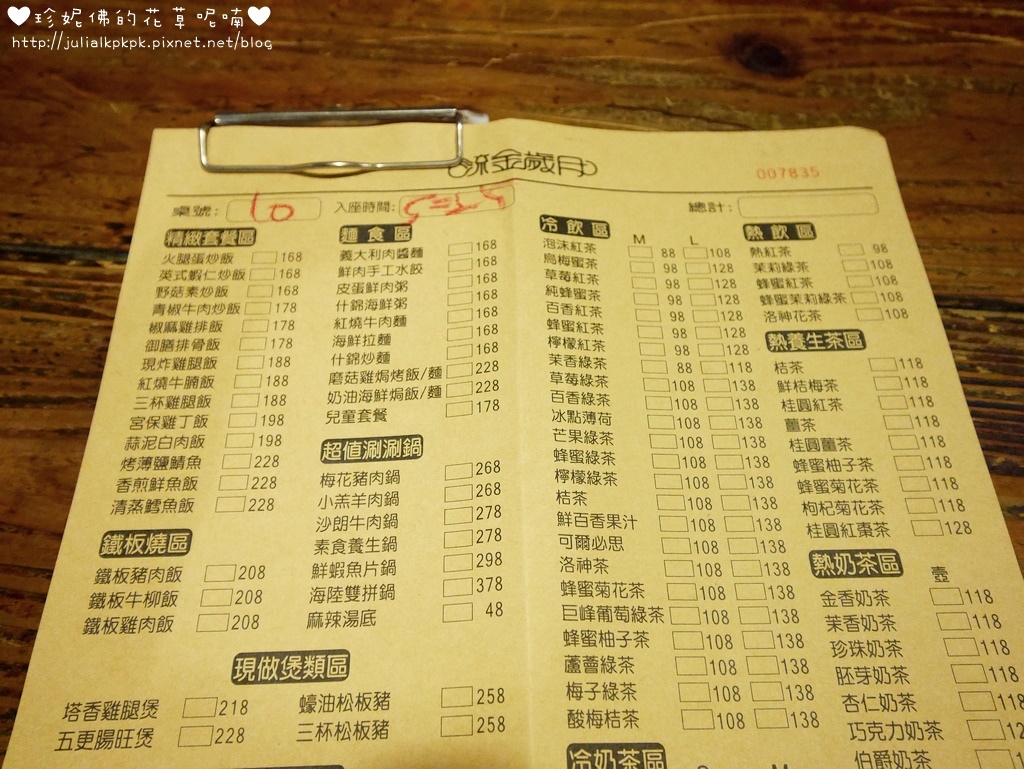 ♥珍妮佛的花草呢喃♥
http://julialkpkpk.pixnet.net/blog
流金歲月
007835
桌號: 10 入座時間: 總計:
精緻套餐區
火腿蛋炒飯 168
英式蝦仁炒飯 168
野菇素炒飯 168
青椒牛肉炒飯 178
椒麻雞排飯 178
御膳排骨飯 178
現炸雞腿飯 188
紅燒牛腩飯 188
三杯雞腿飯 188
宮保雞丁飯 198
蒜泥白肉飯 198
烤薄鹽鯖魚 228
香煎鮮魚飯 228
清蒸鱈魚飯 228
鐵板燒區
鐵板豬肉飯 208
鐵板牛柳飯 208
鐵板雞肉飯 208
麵食區
義大利肉醬麵 168
鮮肉手工水餃 168
皮蛋鮮肉粥 168
什錦海鮮粥 168
紅燒牛肉麵 168
海鮮拉麵 168
什錦炒麵 168
磨菇雞焗烤飯/麵 228
奶油海鮮焗飯/麵 228
兒童套餐 178
超值涮涮鍋
梅花豬肉鍋 268
小羔羊肉鍋 268
沙朗牛肉鍋 278
素食養生鍋 278
鮮蝦魚片鍋 298
海陸雙拼鍋 378
麻辣湯底 48
現做煲類區
塔香雞腿煲 218
五更腸旺煲 228
蠔油松板豬 258
三杯松板豬 258
冷飲區 M L
泡沫紅茶 88 108
烏梅蜜茶 98 128
草莓紅茶 98 128
純蜂蜜茶 98 128
百香紅茶 98 128
蜂蜜紅茶 98 128
檸檬紅茶 98 128
茉香綠茶 88 118
草莓綠茶 108 138
百香綠茶 108 138
冰點薄荷 108 138
芒果綠茶 108 138
蜂蜜綠茶 108 138
檸檬綠茶 108 138
桔茶 108 138
鮮百香果汁 108 138
可爾必思 108 138
洛神茶 108 138
蜂蜜菊花茶 108 138
巨峰葡萄綠茶 108 138
蜂蜜柚子茶 108 138
蘆薈綠茶 108 138
梅子綠茶 108 138
酸梅桔茶 108 138
冷奶茶區
熱飲區
熱紅茶 98
茉莉綠茶 108
蜂蜜紅茶 108
蜂蜜茉莉綠茶 108
洛神花茶 108
熱養生茶區
桔茶 118
鮮桔梅茶 118
桂圓紅茶 118
薑茶 118
桂圓薑茶 118
蜂蜜柚子茶 118
蜂蜜菊花茶 118
枸杞菊花茶 118
桂圓紅棗茶 128
熱奶茶區 壺
金香奶茶 118
茉香奶茶 118
珍珠奶茶 118
胚芽奶茶 118
杏仁奶茶 118
巧克力奶茶
伯爵奶茶